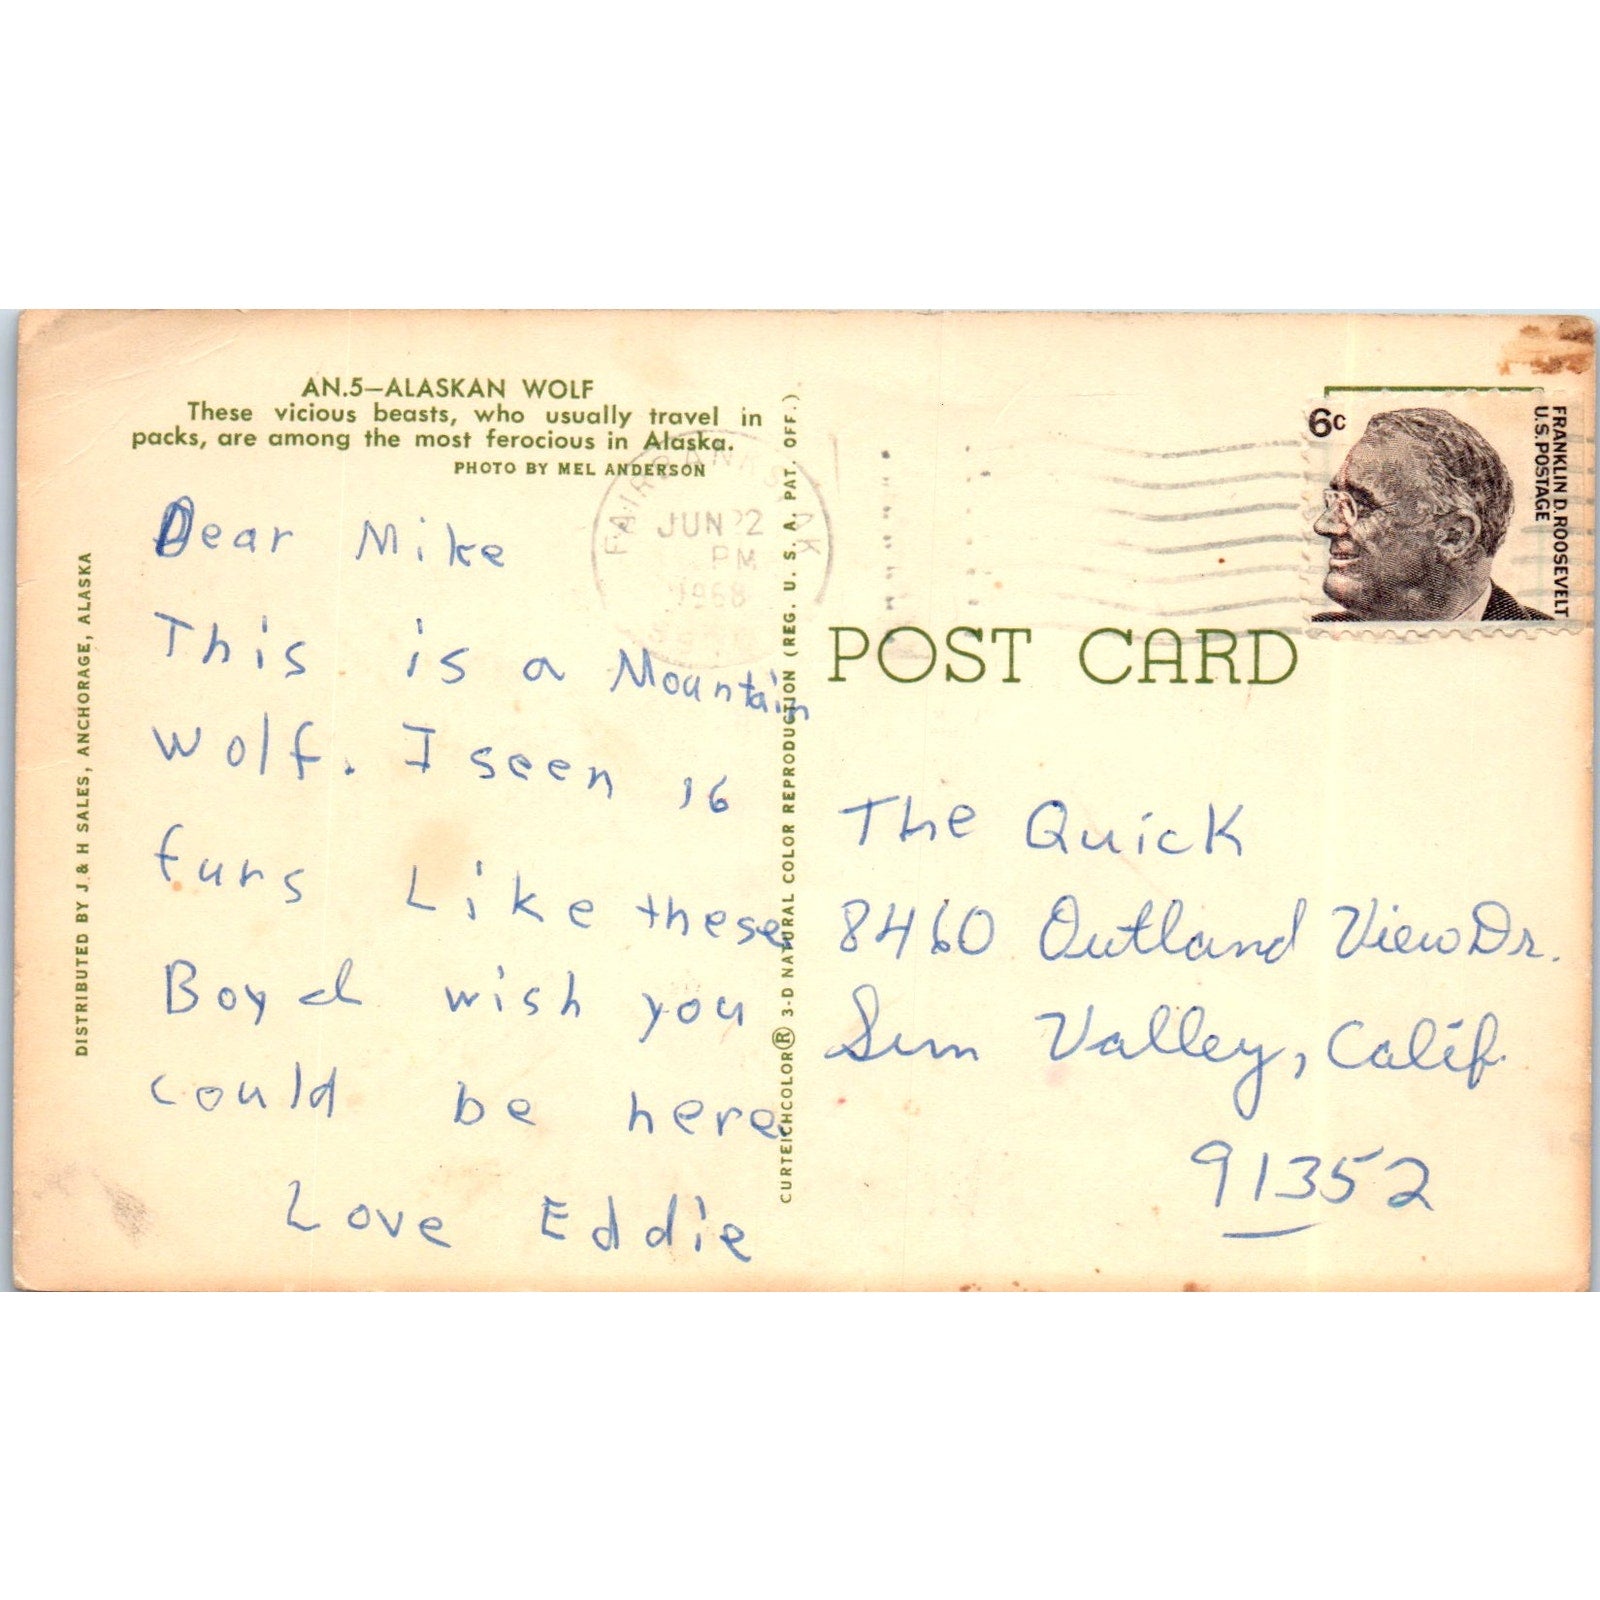 AN.5—ALASKAN WOLF
These vicious beasts, who usually travel in
packs, are among the most ferocious in Alaska.
PHOTO BY MEL ANDERSON
Dear Mike
This is a Mountain
wolf. I seen 16
furs Like these
Boy d wish you
could be here.
Love Eddie
DISTRIBUTED BY J & H SALES, ANCHORAGE, ALASKA
CURTEICHCOLOR® 3-D NATURAL COLOR REPRODUCTION (REG. U. S. A. PAT. OFF.)
FAIRBANKS AK
JUN 22
PM
1968
6c
FRANKLIN D. ROOSEVELT
U.S. POSTAGE
POST CARD
The Quick
8460 Outland View Dr.
Sun Valley, Calif.
91352